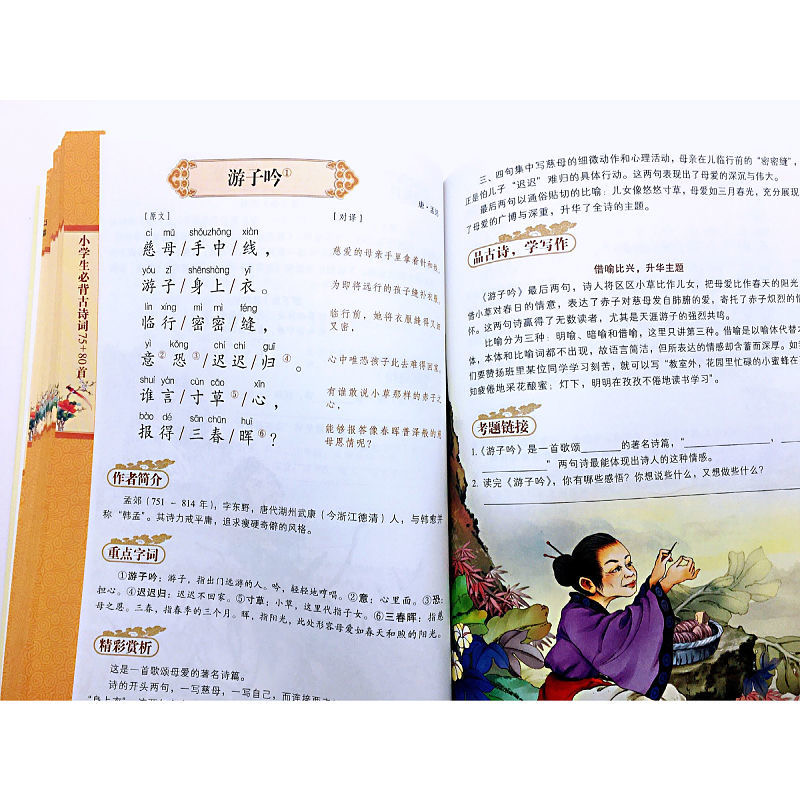 小学生必背古诗词75+80首
游子吟①
唐·孟郊
[原文]
[对译]
cí mǔ shǒuzhōng xiàn
慈母/手中/线，
慈爱的母亲手里拿着针和线，
yóu zǐ shēnshàng yī
游子/身上/衣。
为即将远行的孩子缝补衣服。
lín xíng mì mì féng
临行/密密/缝，
临行前，她将衣服缝得又
又密，
yì kǒng chí chí guī
意②恐③/迟迟/归④。
心中唯恐孩子此去难得回家。
shuí yán cùn cǎo xīn
谁言/寸草⑤/心，
有谁敢说小草那样的赤子之
心，
bào dé sān chūn huī
报得/三春/晖⑥？
能够报答像春晖普泽般的慈
母恩情呢？
作者简介
孟郊（751－814年），字东野，唐代湖州武康（今浙江德清）人，与韩愈并
称“韩孟”。其诗力戒平庸，追求瘦硬奇僻的风格。
重点字词
①游子吟：游子，指出门远游的人。吟，轻轻地哼唱。②意：心里面。③恐：
担心。④迟迟归：迟迟不回家。⑤寸草：小草，这里代指子女。⑥三春晖：指慈
母之恩。三春，指春季的三个月。晖，指阳光，此处形容母爱如春天和煦的阳光。
精彩赏析
这是一首歌颂母爱的著名诗篇。
诗的开头两句，一写慈母，一写自己，而连接两
三、四句集中写慈母的细微动作和心理活动，母亲在儿临行前的“密密缝”，
正是怕儿子“迟迟”难归的具体行动。这两句表现出了母爱的深沉与伟大。
最后两句以通俗贴切的比喻：儿女像悠悠寸草，母爱如三月春光，充分展现
了母爱的广博与深重，升华了全诗的主题。
品古诗，学写作
借喻比兴，升华主题
《游子吟》最后两句，诗人将区区小草比作儿女，把母爱比作春天的阳光
借小草对春日的情意，表达了赤子对慈母发自肺腑的爱，寄托了赤子炽烈的情
怀。这两句诗赢得了无数读者，尤其是天涯游子的强烈共鸣。
比喻分为三种：明喻、暗喻和借喻，这里只讲第三种。借喻是以喻体代替本
体，本体和比喻词都不出现，故语言简洁，但所表达的情感却含蓄而深厚。如
们要赞扬班里某位同学学习刻苦，就可以写“教室外，花园里忙碌的小蜜蜂在
知疲倦地采花酿蜜；灯下，明明在孜孜不倦地读书学习”。
考题链接
1.《游子吟》是一首歌颂________的著名诗篇，“________________，
________________”两句诗最能体现出诗人的这种情感。
2. 读完《游子吟》，你有哪些感悟？你想说些什么，又想做些什么？